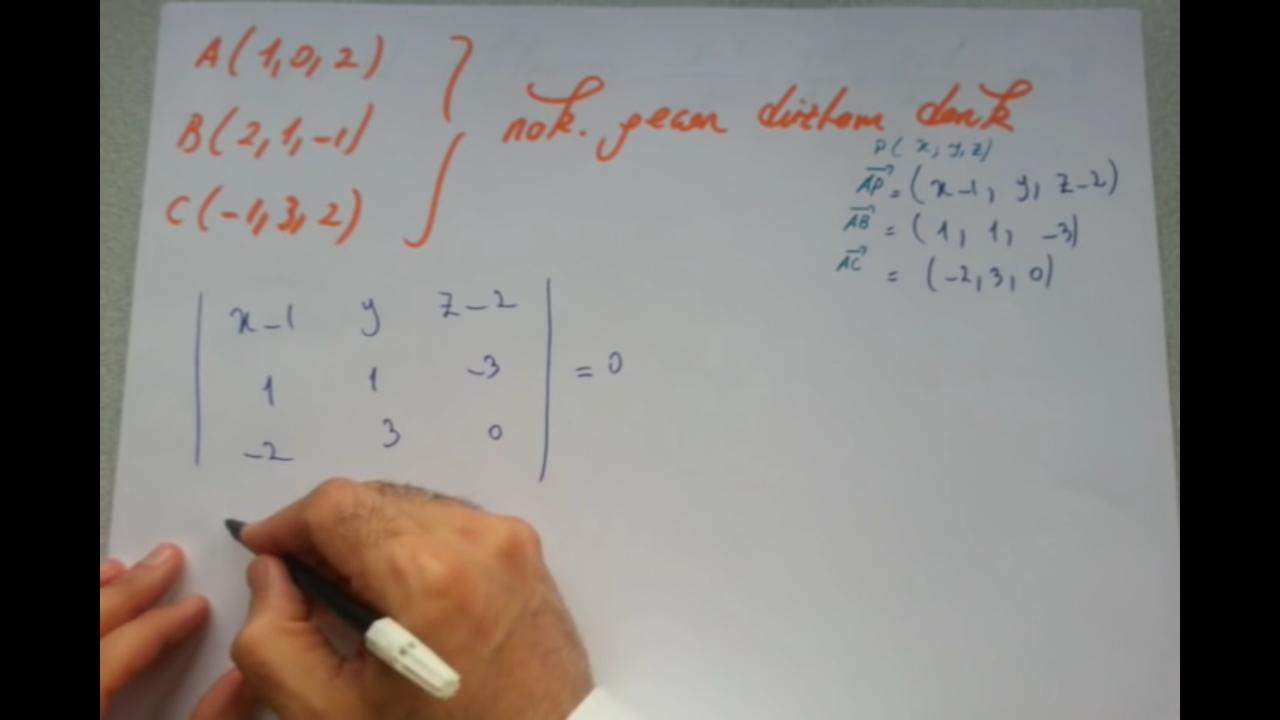 A(1,0,2)
B(2,1,-1)
C(-1,3,2)
nok. geçen düzlem denk
P(x,y,z)
AP = (x-1, y, z-2)
AB = (1, 1, -3)
AC = (-2,3,0)
x-1 y z-2
1 1 -3 = 0
-2 3 0